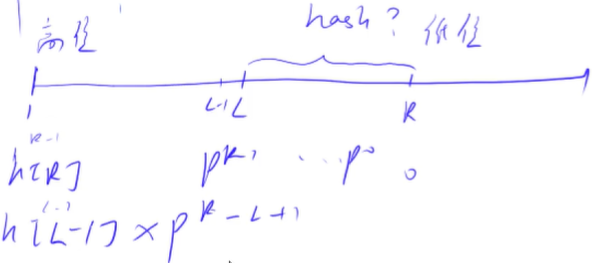 高位 hash? 低位
1 L-1 L R
R-1
h[R] p^R-1 ... p^0 0
L-1
h[L-1] × p^R-L+1